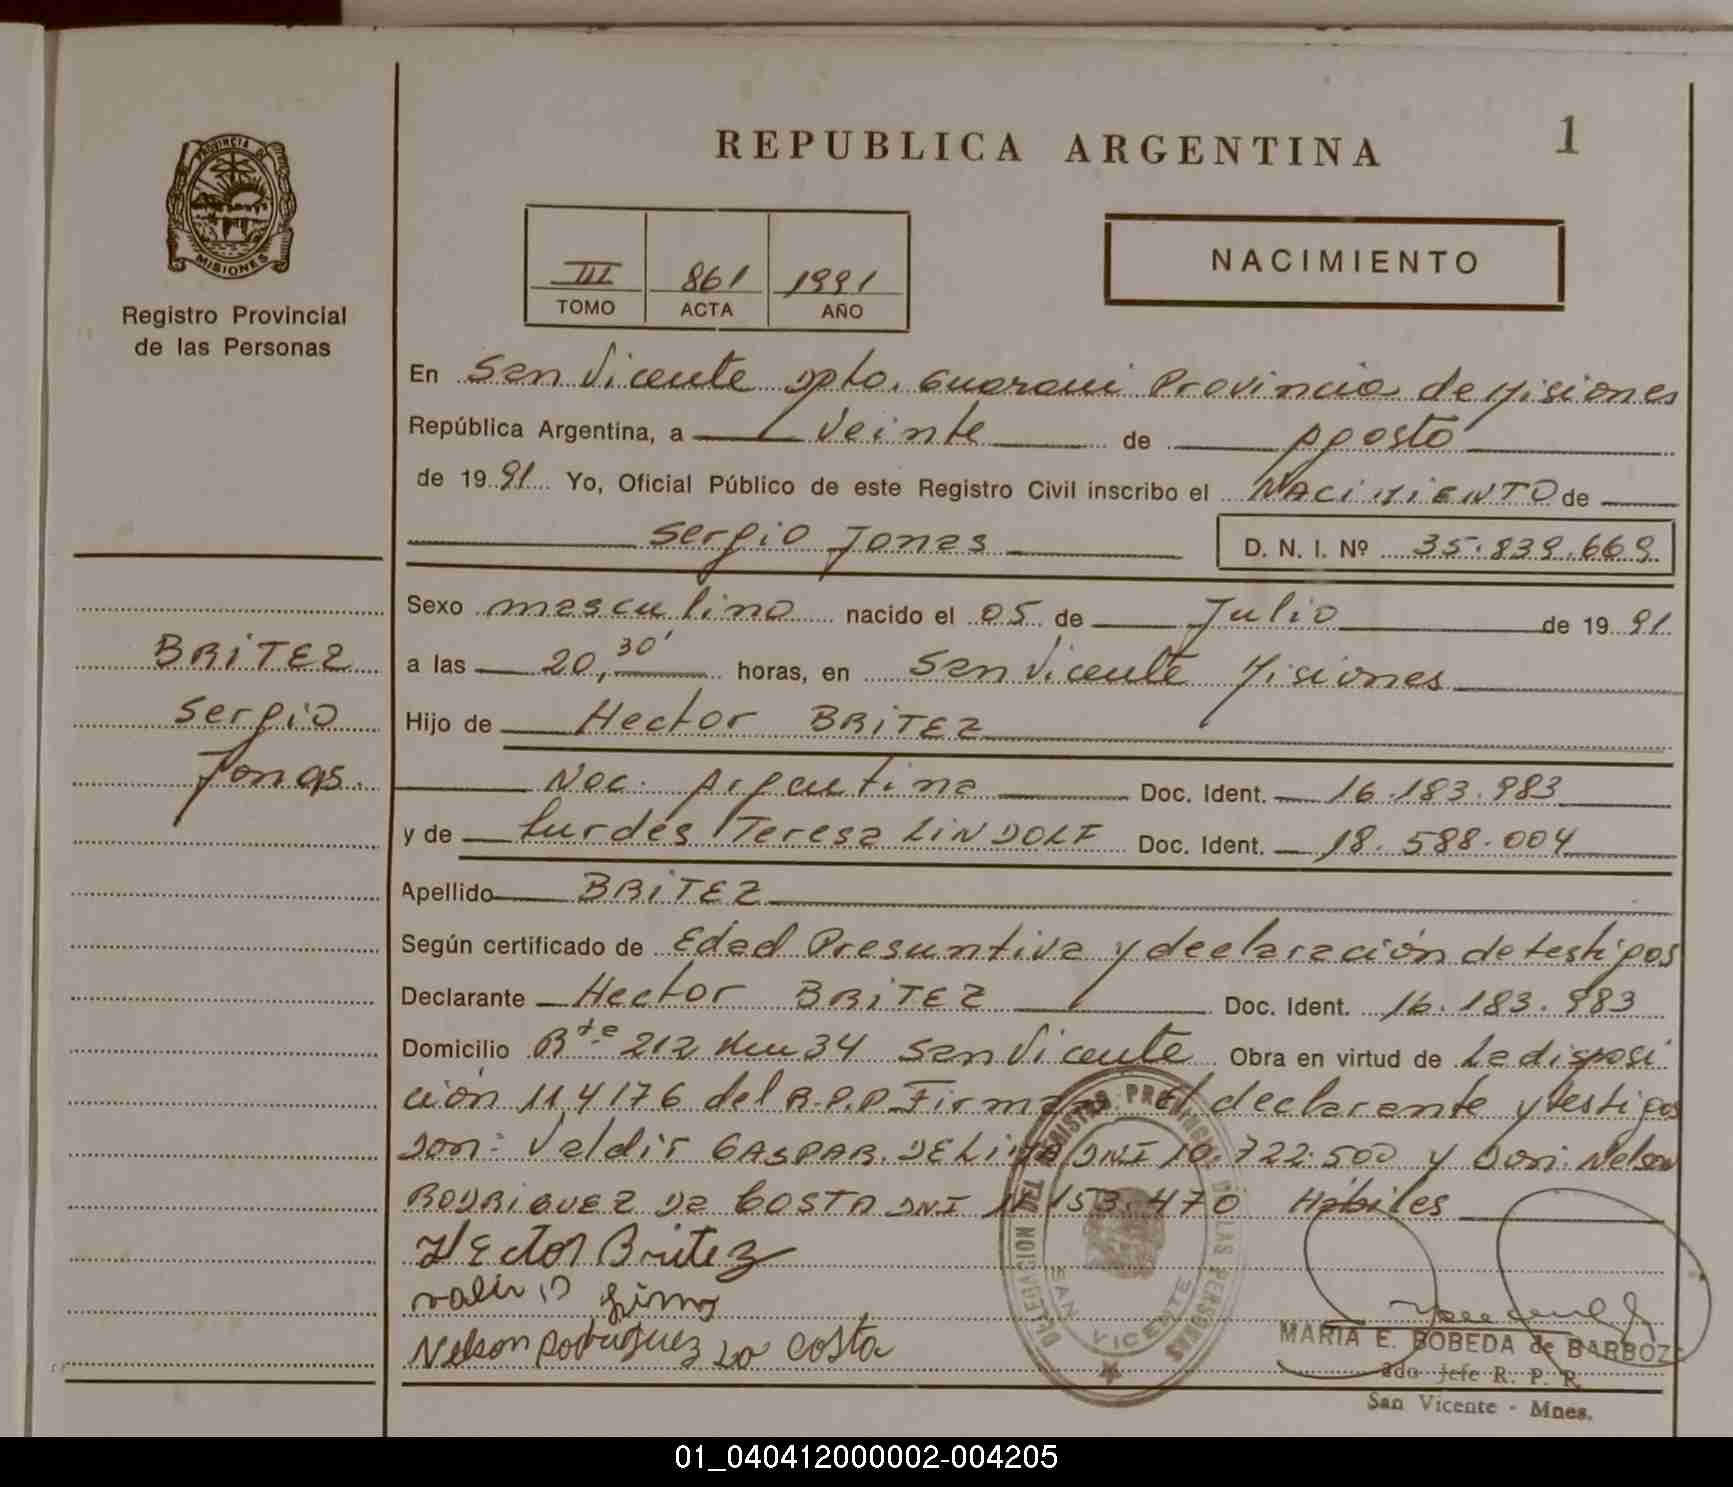 REPUBLICA ARGENTINA
1
PROVINCIA DE
MISIONES
Registro Provincial
de las Personas
III 861 1991
TOMO ACTA AÑO
NACIMIENTO
En San Vicente Dpto. Guarani Provincia de Misiones
República Argentina, a Veinte de Agosto
de 1991 Yo, Oficial Público de este Registro Civil inscribo el NACIMIENTO de
Sergio Jonas D. N. I. Nº 35.839.669
Sexo masculino nacido el 05 de Julio de 1991
a las 20,30' horas, en San Vicente Misiones
Hijo de Hector BRITEZ
Nac. Argentina Doc. Ident. 16.183.983
y de Lurdes Teresa LINDOLF Doc. Ident. 18.588.004
Apellido BRITEZ
Según certificado de Edad Presuntiva y declaración de testigos
Declarante Hector BRITEZ Doc. Ident. 16.183.983
Domicilio Rta 212 Km 34 San Vicente Obra en virtud de La disposi
ción 114176 del R.P.P. Firman El declarante y testigos
Don: Valdir GASPAR DE LIMA DNI 10.722.500 y Don: Nelson
RODRIGUEZ Da COSTA DNI 153.470 Hábiles
Hector Britez
Lima
Nelson Rodriguez Da Costa
BRITEZ
Sergio
Jonas.
DELEGACION DEL REGISTRO PROVINCIAL DE LAS PERSONAS
SAN VICENTE
MARIA E. BOBEDA de BARBOZ
Jefe R. P. P.
San Vicente - Mnes.
01_040412000002-004205